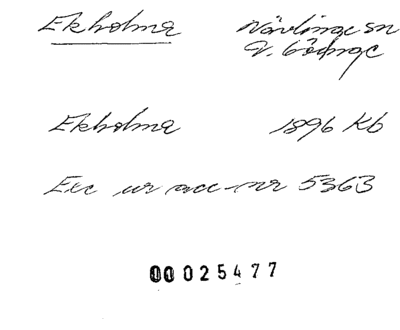 Ekholma Nävlinge sn
V. Göinge
Ekholma 1896 Kb
Exc ur acc-nr 5363
00025477